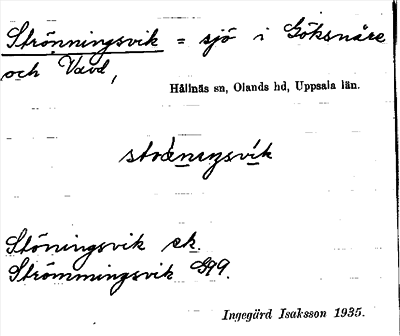 Strönningsvik = sjö i Göksnåre
och Vavd,
Hållnäs sn, Olands hd, Uppsala län.
Stöningsvik ek.
Strömmingsvik G99.
Ingegärd Isaksson 1935.